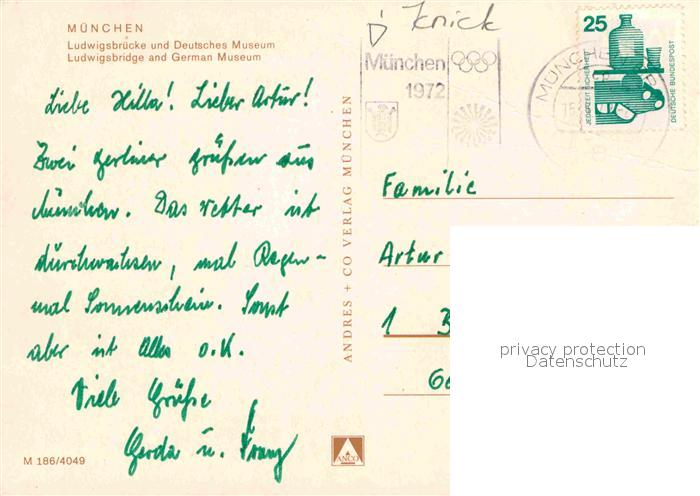 MÜNCHEN
Ludwigsbrücke und Deutsches Museum
Ludwigsbridge and German Museum
Liebe Hilla! Lieber Artur!
Zwei Berliner grüßen aus
München. Das Wetter ist
durchwachsen, mal Regen -
mal Sonnenschein. Sonst
aber ist Alles o.K.
Viele Grüße
Gerda u. Franz
M 186/4049
ANDRES + CO VERLAG MÜNCHEN
ANCO
Knick
München
1972
MÜNCHEN
25
JEDERZEIT SICHERHEIT
DEUTSCHE BUNDESPOST
Familie
Artur
1 B
privacy protection
Datenschutz